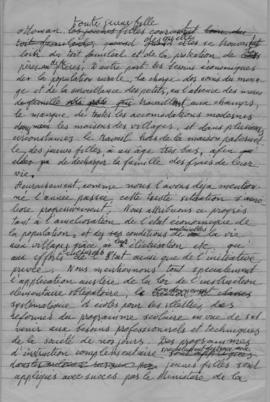 Toute jeune fille
loin du toit familial et de la protection de
pères et mères. D'autre part les besoins économiques
de la population rurale, la charge des soins du ména-
ge et de la surveillance des petits, en l'absence des
travaillant aux champs,
le manque de toutes les accomodations modernes
dans les maisons des villages, et dans plusieurs
circonstances le travail hors de la maison paternel-
le, des jeunes filles à un âge très bas, afin
de décharger la famille des frais de leur
vie.
Heureusement, comme nous l'avons déjà mention-
né l'année passée, cette triste situation s'amé-
liore progressivement. Nous attribuons ce progrès
tout à l'amélioration de l'état économique de
la population, et des conditions de la vie
aux villages grâce à l'électrisation etc, que
aux efforts de l'État ainsi que de l'initiative
privée. Nous mentionnons tout spécialement
l'application austère de la loi de l'instruction
élémentaire obligatoire, le
systématique d'écoles pour les filles, des
réformes du programme scolaire en vue de sub-
venir aux besoins professionnels et techniques
de la société de nos jours. Des programmes
d'instruction complémentaire
jeunes filles sont
appliqués avec succès par le Ministère de la